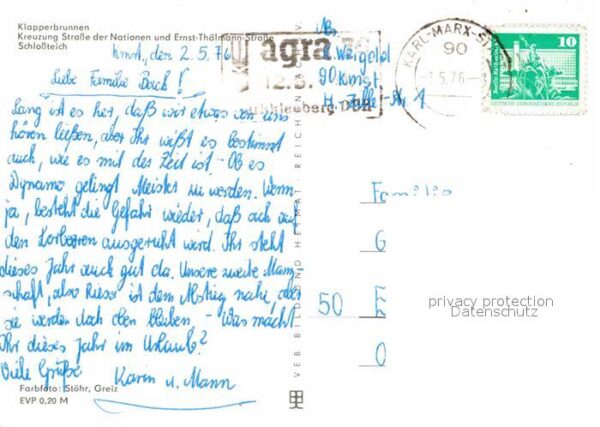 Klapperbrunnen
Kreuzung Straße der Nationen und Ernst-Thälmann-Straße
Schloßteich
Kmst, den 2.5.76
Liebe Familie Bock!
Lang ist es her, daß wir etwas von uns
hören ließen, aber Ihr wißt es bestimmt
auch, wie es mit der Zeit ist. Ob es
Dynamo gelingt Meister zu werden. Wenn
ja, besteht die Gefahr wieder, daß sich auf
den Lorbeeren ausgeruht wird. Ihr steht
dieses Jahr auch gut da. Unsere zweite Mann
schaft, also Riesa ist dem Abstieg nahe, aber
sie werden doch oben bleiben. - Was macht
Ihr dieses Jahr im Urlaub?
Viele Grüße
Karin u. Mann
Farbfoto: Stöhr, Greiz
EVP 0,20 M
VEB BILD UND HEIMAT REICHENBACH
agra 76
12.5.
Markkleeberg-DDR
Weigold
90 Kmst
H. Zille-Str. 1
KARL-MARX-STADT
90
5.76
10
DEUTSCHE DEMOKRATISCHE REPUBLIK
Familie
G
50 E
O
privacy protection
Datenschutz